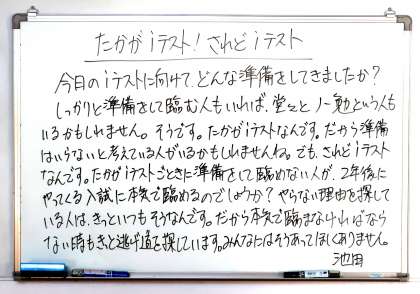 たかがiテスト！されどiテスト
今日のiテストに向けて、どんな準備をしてきましたか？
しっかりと準備をして臨む人もいれば、堂々とノー勉という人も
いるかもしれません。そうです。たかがiテストなんです。だから準備
はいらないと考えている人がいるかもしれませんね。でも、されどiテスト
なんです。たかがiテストごときに準備をして臨めない人が、2年後に
やってくる入試に本気で臨めるのでしょうか？やらない理由を探して
いる人は、きっといつもそうなんです。だから本気で臨まなければなら
ない時もきっと逃げ道を探しています。みんなにはそうあってほしくありません。
池田